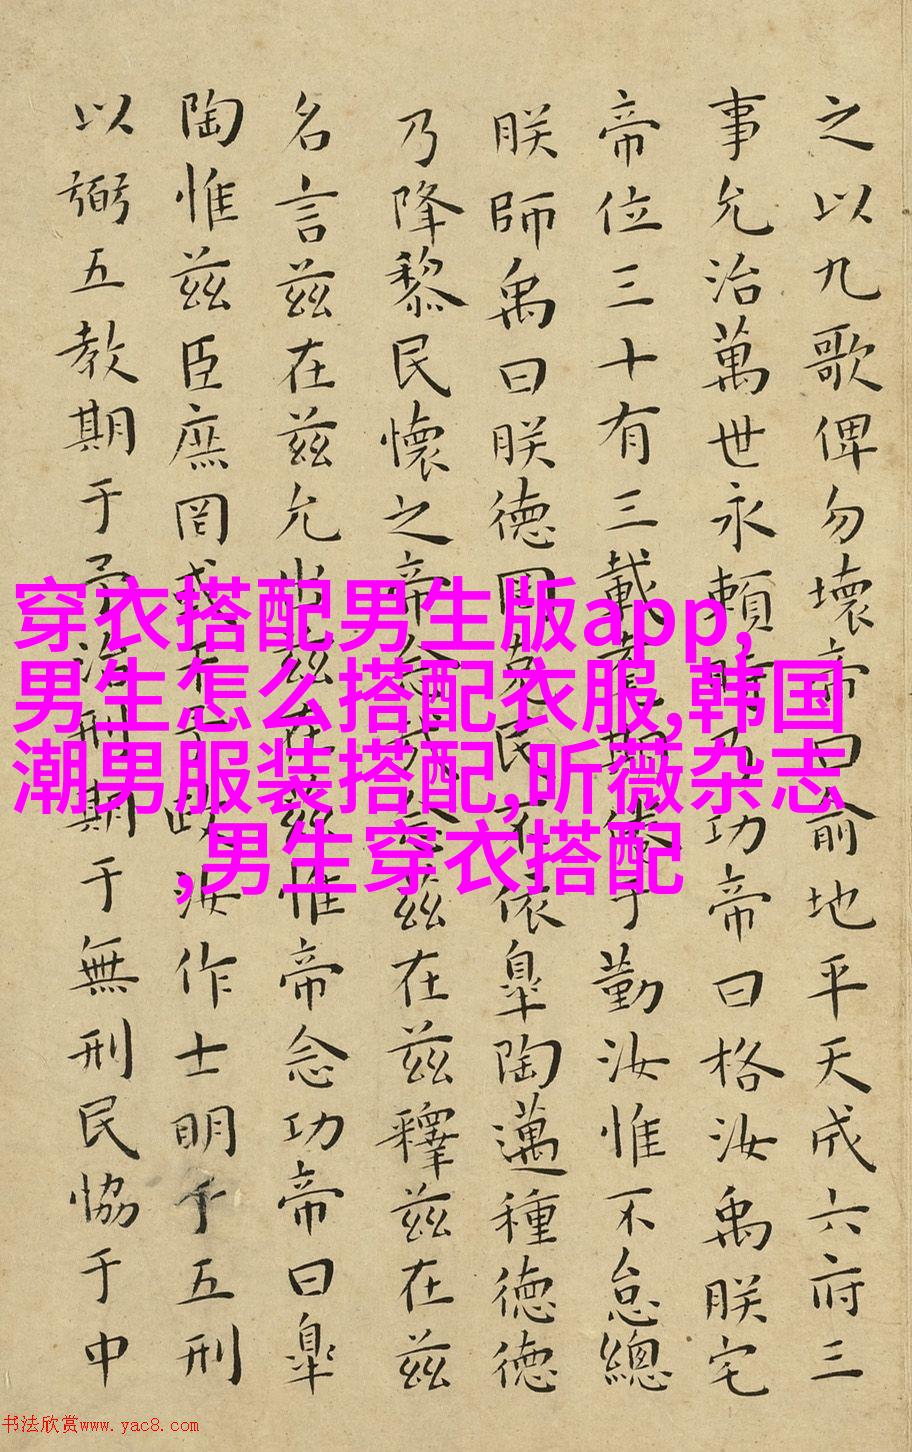 之以九歌俾勿壞帝曰俞地平天成六府三
事允治萬世永賴時乃功帝曰格汝禹朕宅
帝位三十有三載耄期倦于勤汝惟不怠總
朕師禹曰朕德罔克民不依皐陶邁種德德
乃降黎民懷之帝念哉念茲在茲釋茲在茲
名言茲在茲允出茲在茲惟帝念功帝曰皐
陶惟茲臣庶罔或干予政汝作士明于五刑
以弼五教期于予治刑期于無刑民協于中
穿衣搭配男生版app,
男生怎么搭配衣服,韩国
潮男服装搭配,昕薇杂志
,男生穿衣搭配
书法欣赏www.yac8.com